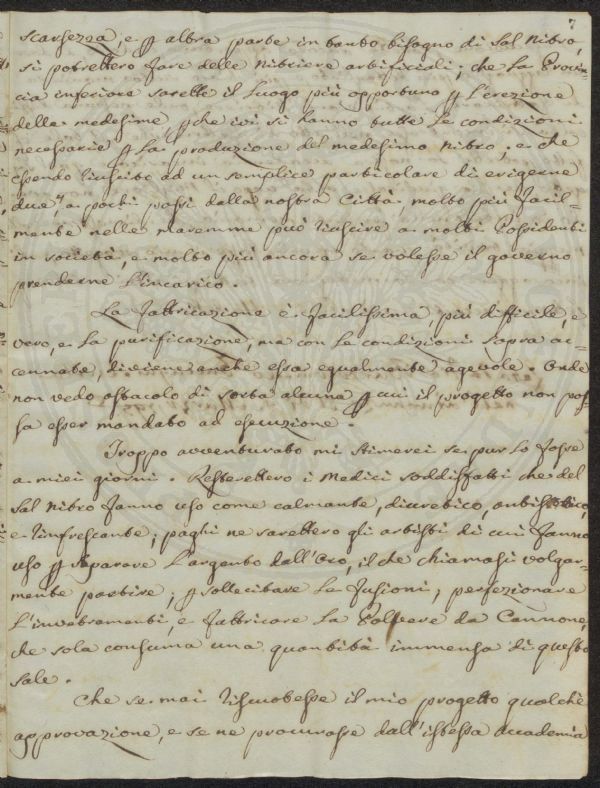 7
scarsezza, e p altra parte in tanto bisogno di Sal Nitro,
si potrebbero fare delle Nitriere artificiali; che la Provin-
cia inferiore sarebbe il Luogo più opportuno p L'erezione
delle medesime, pche ivi si hanno tutte Le condizioni
necessarie p La produzione del medesimo Nitro; e che
essendo riuscito ad un semplice particolare di erigerne
due, a pochi passi dalla nostra Città, molto più facil-
mente nelle maremme può riuscire a molti Possidenti
in società, e molto più ancora se volesse il governo
prenderne L'incarico.
La fabbricazione è facilissima, più difficile, è
vero, è La purificazione, ma con Le condizioni sopra ac-
cennate, diviene anche essa egualmente agevole. Onde
non vedo ostacolo di sorta alcuna p cui il progetto non pos-
sa esser mandato ad esecuzione.
Troppo avventurato mi stimerei se pur Lo fosse
a miei giorni. Resterebbero i Medici soddisfatti che del
Sal Nitro fanno uso come calmante, diuretico, antisettico,
e rinfrescante; paghi ne sarebbero gli artisti di cui fanno
uso p separare L'argento dall'Oro, il che chiamasi volgar-
mente partire; p sollecitare Le fusioni; perfezionare
L'invetramenti, e fabbricare La Polvere da Cannone,
che sola consuma una quantità immensa di questo
sale.
Che se mai riscuotesse il mio progetto qualche
approvazione, e se ne procurasse dall'istessa accademia